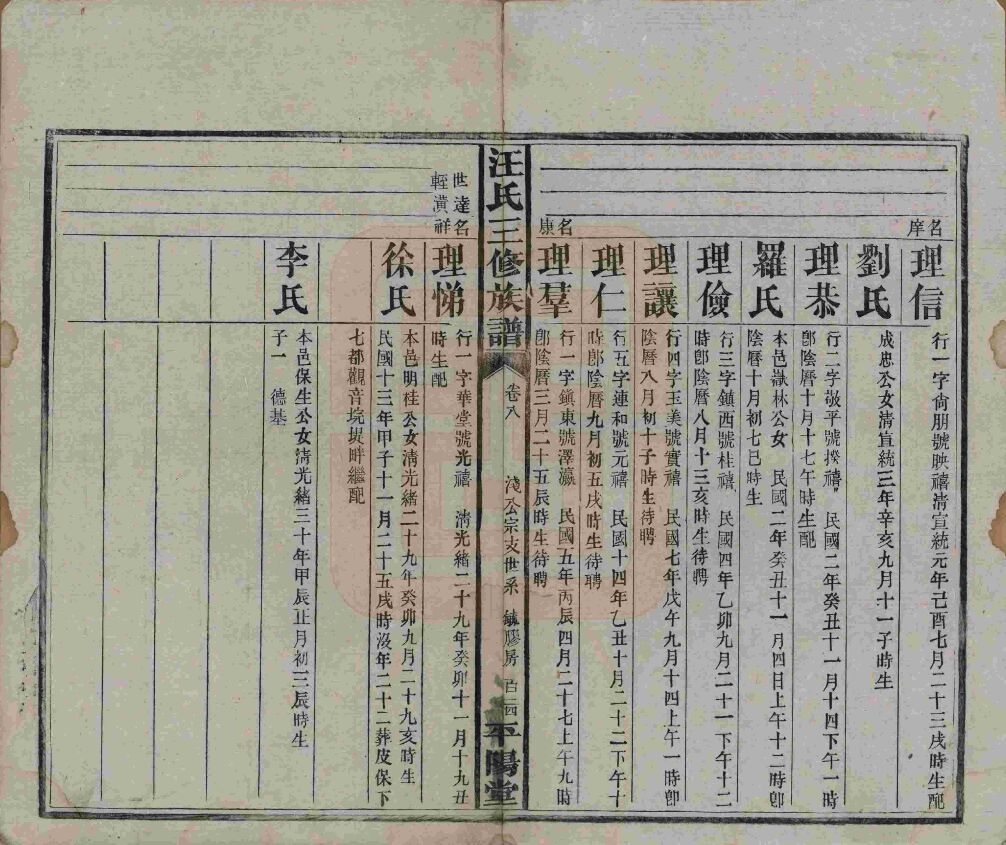 名庠
理信
行一字尚朋號映禧清宣統元年己酉七月二十三戌時生配
劉氏
成忠公女清宣統三年辛亥九月十一子時生
理恭
行二字敬平號揆禧民國二年癸丑十一月十四下午一時
卽陰曆十月十七午時生配
羅氏
本邑嶽林公女民國二年癸丑十一月四日上午十二時卽
陰曆十月初七巳時生
理儉
行三字鎮西號桂禧民國四年乙卯九月二十一下午十二
時卽陰曆八月十三亥時生待聘
理讓
行四字玉美號實禧民國七年戊午九月十四上午一時卽
陰曆八月初十子時生待聘
理仁
行五字連和號元禧民國十四年乙丑十月二十二下午十
時卽陰曆九月初五戌時生待聘
名康
理羣
行一字鎮東號澤瀛民國五年丙辰四月二十七上午九時
卽陰曆三月二十五辰時生待聘
汪氏三修族譜
卷八
淺公宗支世系
膠房
百二四
平陽堂
世達名
輊潢祥
理悌
行一字華堂號光禧清光緒二十九年癸卯十一月十九丑
時生配
徐氏
本邑明桂公女清光緒二十九年癸卯九月二十九亥時生
民國十三年甲子十一月二十五戌時沒年二十二葬皮保下
七都觀音垸堤畔繼配
李氏
本邑保生公女清光緒三十年甲辰正月初三辰時生
子一 德基